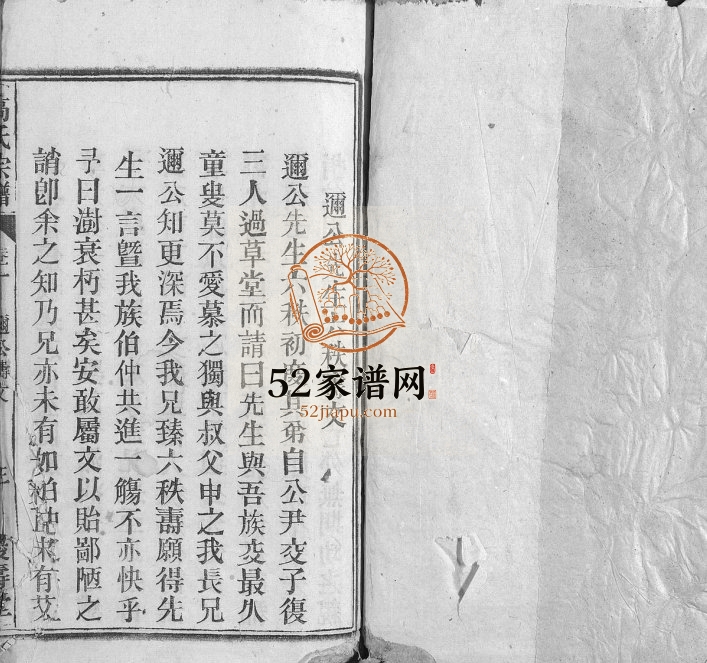 邇公先生六秩壽文
邇公先生六秩初度其弟自公尹交子復
三人過草堂而請曰先生與吾族交最久
童叟莫不愛慕之獨與叔父申之我長兄
邇公知更深焉今我兄臻六秩壽願得先
生一言暨我族伯仲共進一觴不亦快乎
予曰澍衰朽甚矣安敢屬文以貽鄙陋之
誚卽余之知乃兄亦未有如伯 未有艾
高氏宗譜 卷一 邇公壽文
52家谱网
52jiapu.com